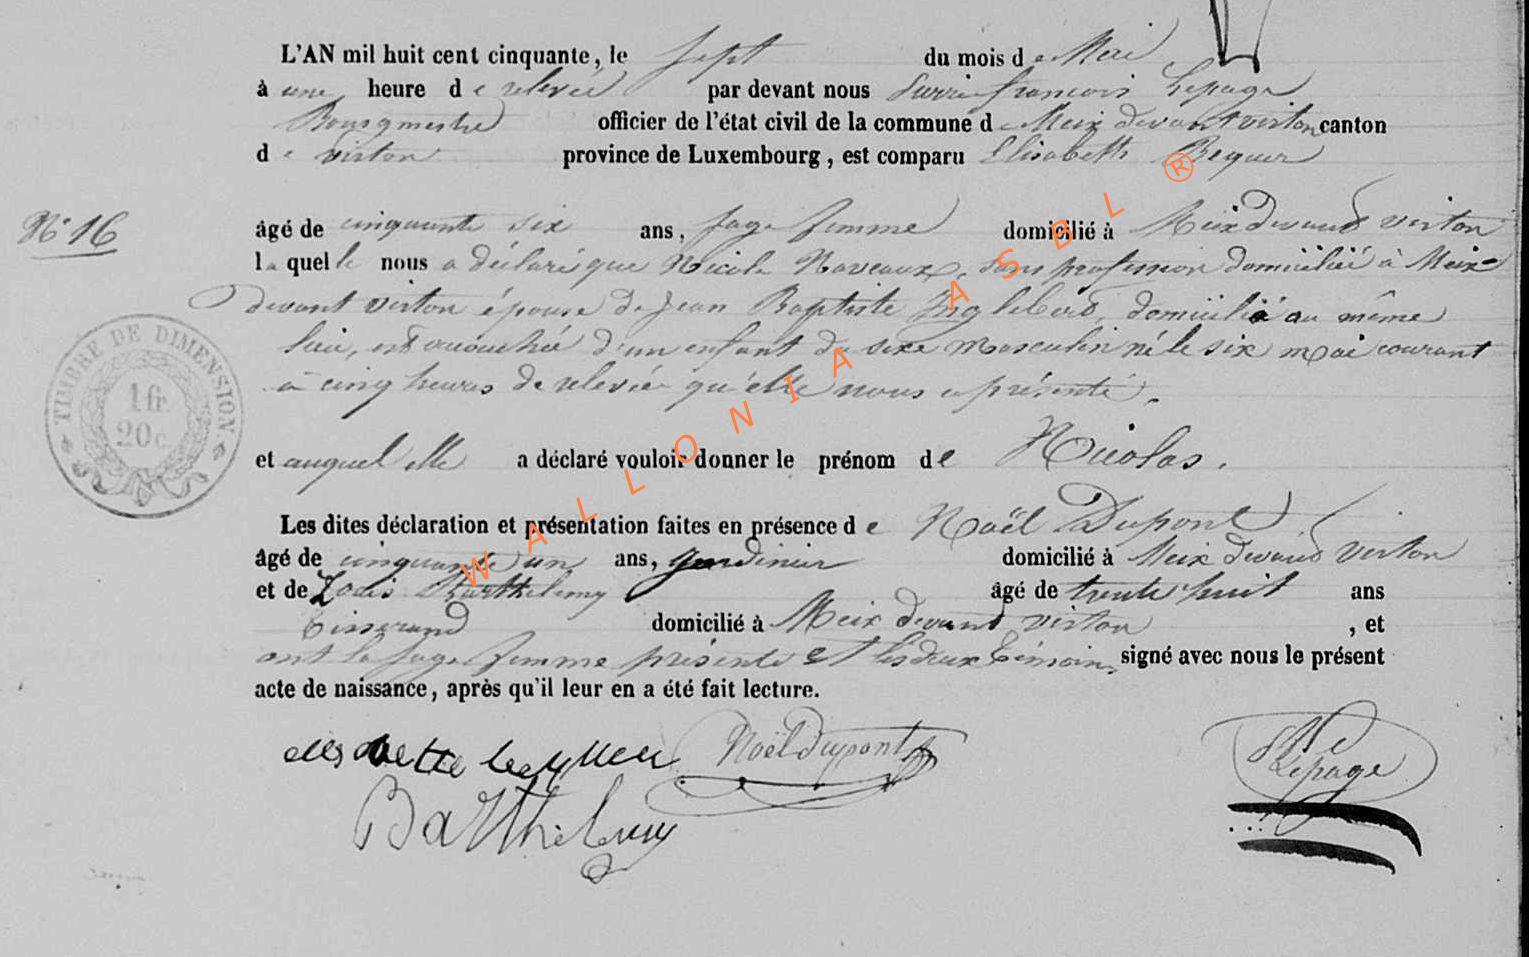 L'AN mil huit cent cinquante, le sept du mois de Mai
à une heure de relevée par devant nous Pierre françois Lepage
Bourgmestre officier de l'état civil de la commune de Meix devant virton canton
de virton province de Luxembourg, est comparu Elisabeth Bequer
N° 16
âgé de cinquante six ans, sage femme domicilié à Meix devant Virton
laquelle nous a déclaré que Nicole Naveaux, sans profession domiciliée à Meix
devant virton épouse de Jean Baptiste Inglebert, domicilié au même
lieu, est accouchée d'un enfant du sexe masculin né le six mai courant
à cinq heures de relevée qu'elle nous a présenté,
TIMBRE DE DIMENSION
1 fr
20 c
et auquel elle a déclaré vouloir donner le prénom de Nicolas.
Les dites déclaration et présentation faites en présence de Noël Dupont
âgé de cinquante un ans, jardinier domicilié à Meix devant Virton
et de Louis Barthelemy âgé de trente huit ans
tisserand domicilié à Meix devant virton, et
ont la sage femme présente et les deux témoins signé avec nous le présent
acte de naissance, après qu'il leur en a été fait lecture.
Noël Dupont
Lepage
Barthelemy
WALLONIA ASBL ®